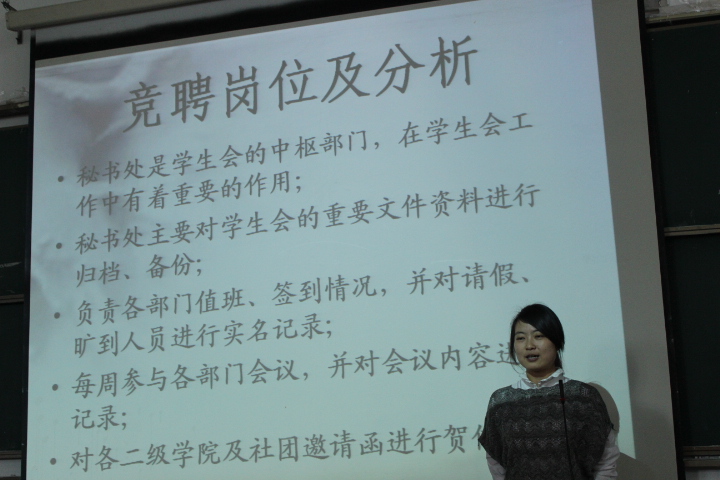 竞聘岗位及分析
• 秘书处是学生会的中枢部门，在学生会工
作中有着重要的作用；
• 秘书处主要对学生会的重要文件资料进行
归档、备份；
• 负责各部门值班、签到情况，并对请假、
旷到人员进行实名记录；
• 每周参与各部门会议，并对会议内容进
记录；
• 对各二级学院及社团邀请函进行贺